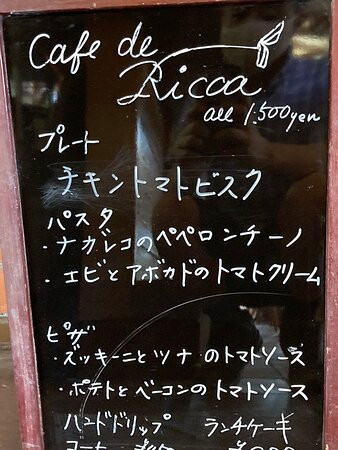 Cafe de
Ricca
all 1.500yen
プレート
チキントマトビスク
パスタ
・ナガレコのペペロンチーノ
・エビとアボカドのトマトクリーム
ピザ
・ズッキーニとツナのトマトソース
・ポテトとベーコンのトマトソース
ハンドドリップ ランチケーキ